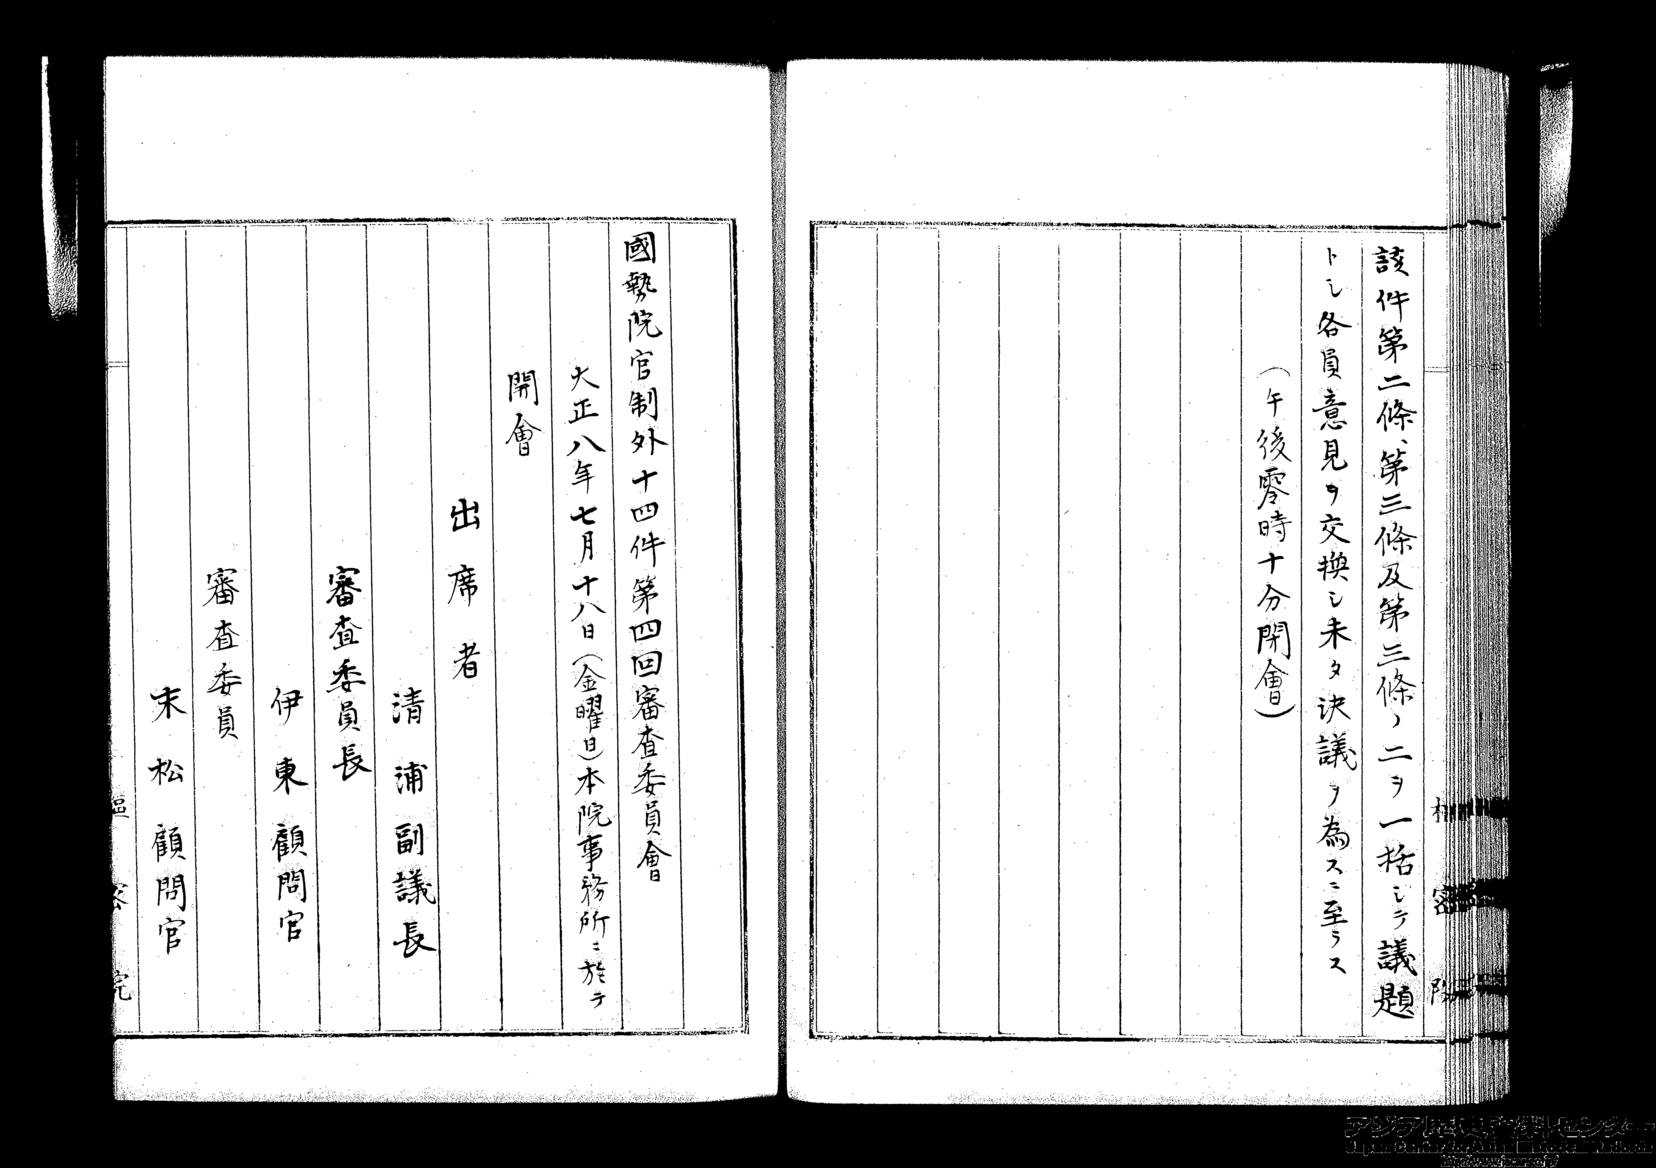 該件第二條、第三條及第三條ノ二ヲ一括シテ議題
トシ各員意見ヲ交換シ未タ決議ヲ為スニ至ラス
(午後零時十分閉會)
國勢院官制外十四件第四回審査委員會
大正八年七月十八日(金曜日)本院事務所ニ於テ
開會
出席者
清浦副議長
審査委員長
伊東顧問官
審査委員
末松顧問官
樞密院
アジア歴史資料センター
Japan Center for Asian Historical Records
http://www.jacar.go.jp/